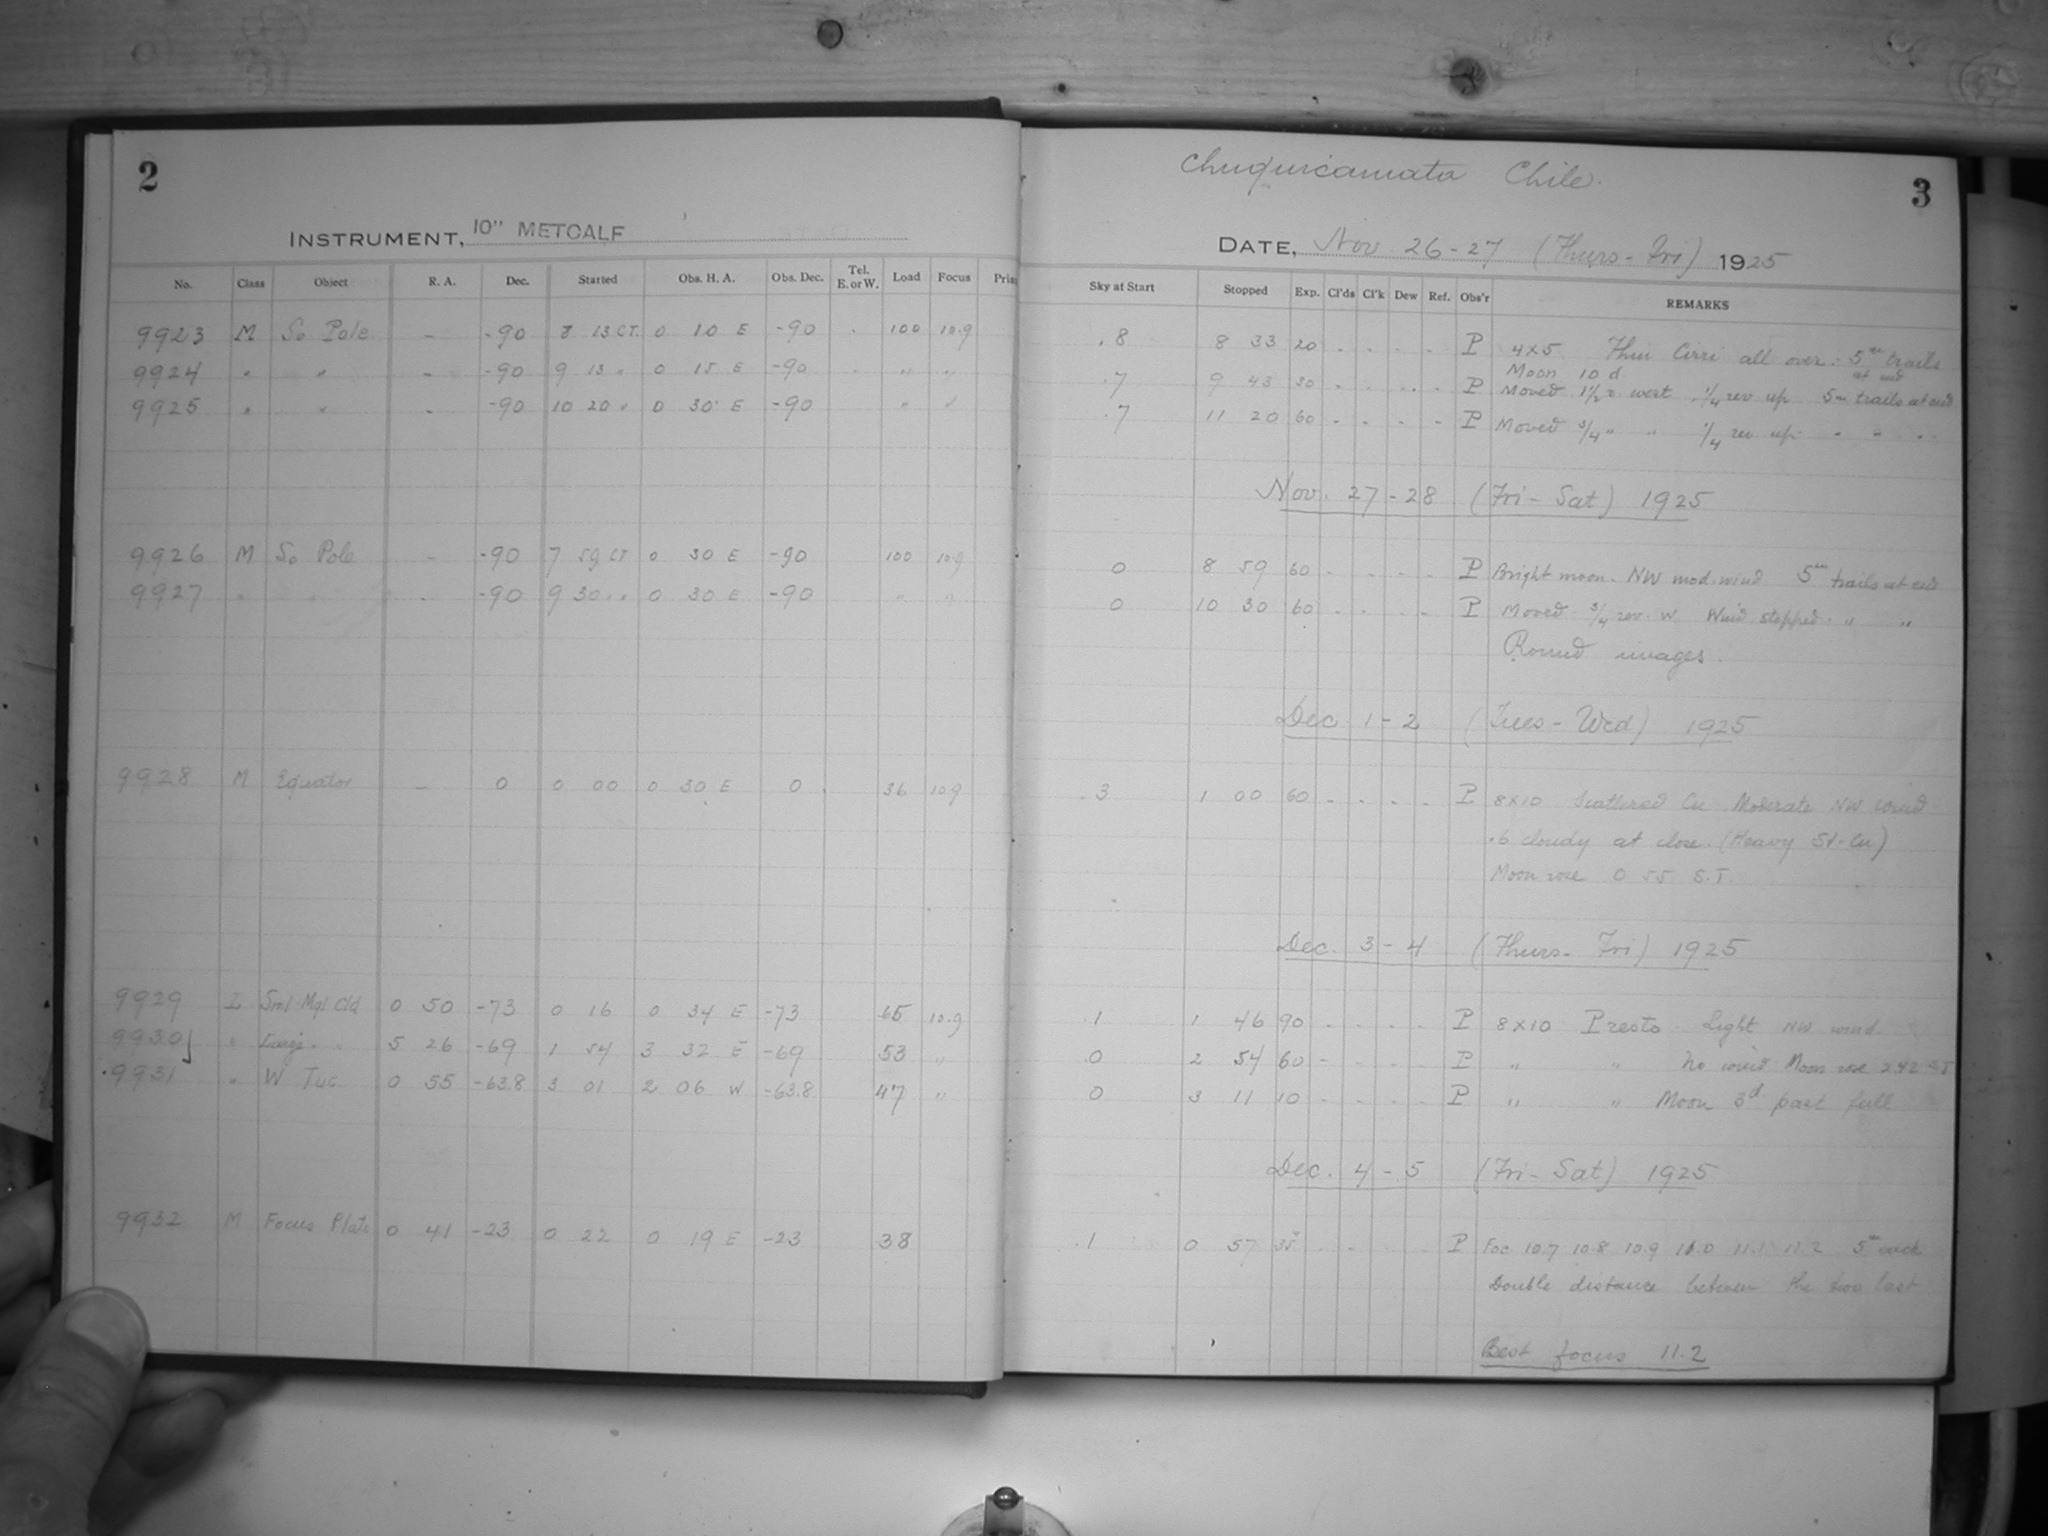 2
INSTRUMENT, 10" METCALF
No. Class Object R. A. Dec. Started Obs. H. A. Obs. Dec. Tel. E. or W. Load Focus
9923 M So Pole - -90 8 13 C.T. 0 10 E -90 100 10.9
9924 " " - -90 9 13 " 0 15 E -90 " "
9925 " " - -90 10 20 " 0 30 E -90 " "
9926 M So Pole - -90 7 59 CT 0 30 E -90 100 10.9
9927 " " - -90 9 30 " " 0 30 E -90 " "
9928 M Equator - 0 0 00 0 30 E 0 36 10.9
9929 I Sml Mgl Cld 0 50 -73 0 16 0 34 E -73 65 10.9
9930 " Large " " 5 26 -69 1 54 3 32 E -69 53 "
9931 " W Tuc 0 55 -63.8 3 01 2 06 W -63.8 47 "
9932 M Focus Plate 0 41 -23 0 22 0 19 E -23 38
Chuquicamata Chile.
3
DATE, Nov. 26-27 (Thurs-Fri) 1925
Sky at Start Stopped Exp. Cl'ds Cl'k Dew Ref. Obs'r REMARKS
.8 8 33 20 - - - - P 4x5 Thin Cirri all over. 5m trails at end
Moon 10 d
.7 9 43 30 - - - - P Moved 1 1/2 r. west. 1/4 rev up 5m trails at end
.7 11 20 60 - - - - P Moved 3/4 " " 1/4 rev up " " "
Nov. 27-28 (Fri-Sat) 1925
0 8 59 60 - - - - P Bright moon. NW mod. wind 5m trails at end
0 10 30 60 - - - - P Moved 3/4 rev. W Wind stopped. " "
Round images.
Dec 1-2 (Tues-Wed) 1925
.3 1 00 60 - - - - P 8x10 Scattered Cu Moderate NW wind
.6 cloudy at close. (Heavy St-Cu)
Moon rose 0 55 S.T.
Dec. 3-4 (Thurs-Fri) 1925
.1 1 46 90 - - - - P 8x10 Presto Light NW wind.
.0 2 54 60 - - - - P " " No wind Moon rose 2 42 S T
0 3 11 10 - - - - P " " Moon 3d past full
Dec. 4-5 (Fri-Sat) 1925
.1 0 57 35 - - - - P Foc 10.7 10.8 10.9 11.0 11.1 11.2 5m each
Double distance between the two last
Best focus 11.2